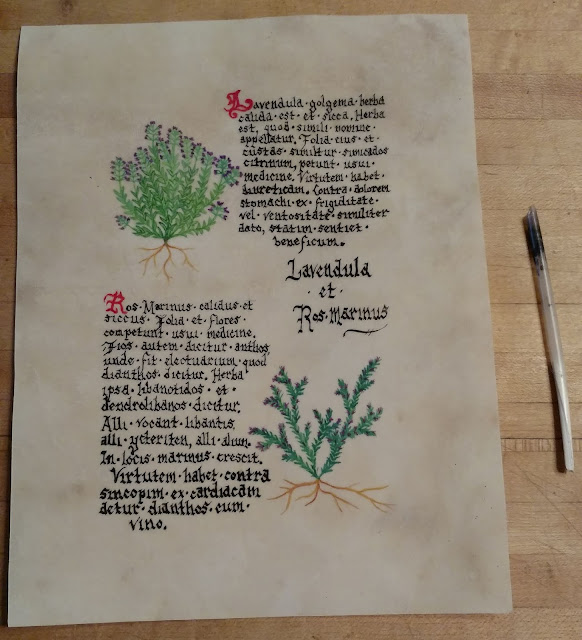 Lavendula · golgema · herba
calida · est · et · sicca. Herba
est, quod · simili · nomine ·
appellatur. Folia · eius · et ·
custas · simultur · simicados
citrinum, petunt · usui ·
medicine. Virtutem · habet ·
diureticam. Contra · dolorem
stomachi · ex · frigiditate ·
vel · ventositate · similiter
dato, statim · sentiet ·
beneficum.
Lavendula
· et ·
Ros · Marinus
Ros · Marinus · calidus · et
siccus · Folia · et · flores ·
competunt · usui · medicine.
Flos · autem · dicitur · anthos
unde · fit · electuarium · quod
dianthos · dicitur. Herba
ipsa · libanotidos · et ·
dendrolibanos · dicitur.
Alli · vocant · libantis,
alli · ycteriten, alli · alium.
In · locis · marinus · crescit.
Virtutem · habet · contra
sincopim · ex · cardiacam
detur · dianthos · cum ·
vino.